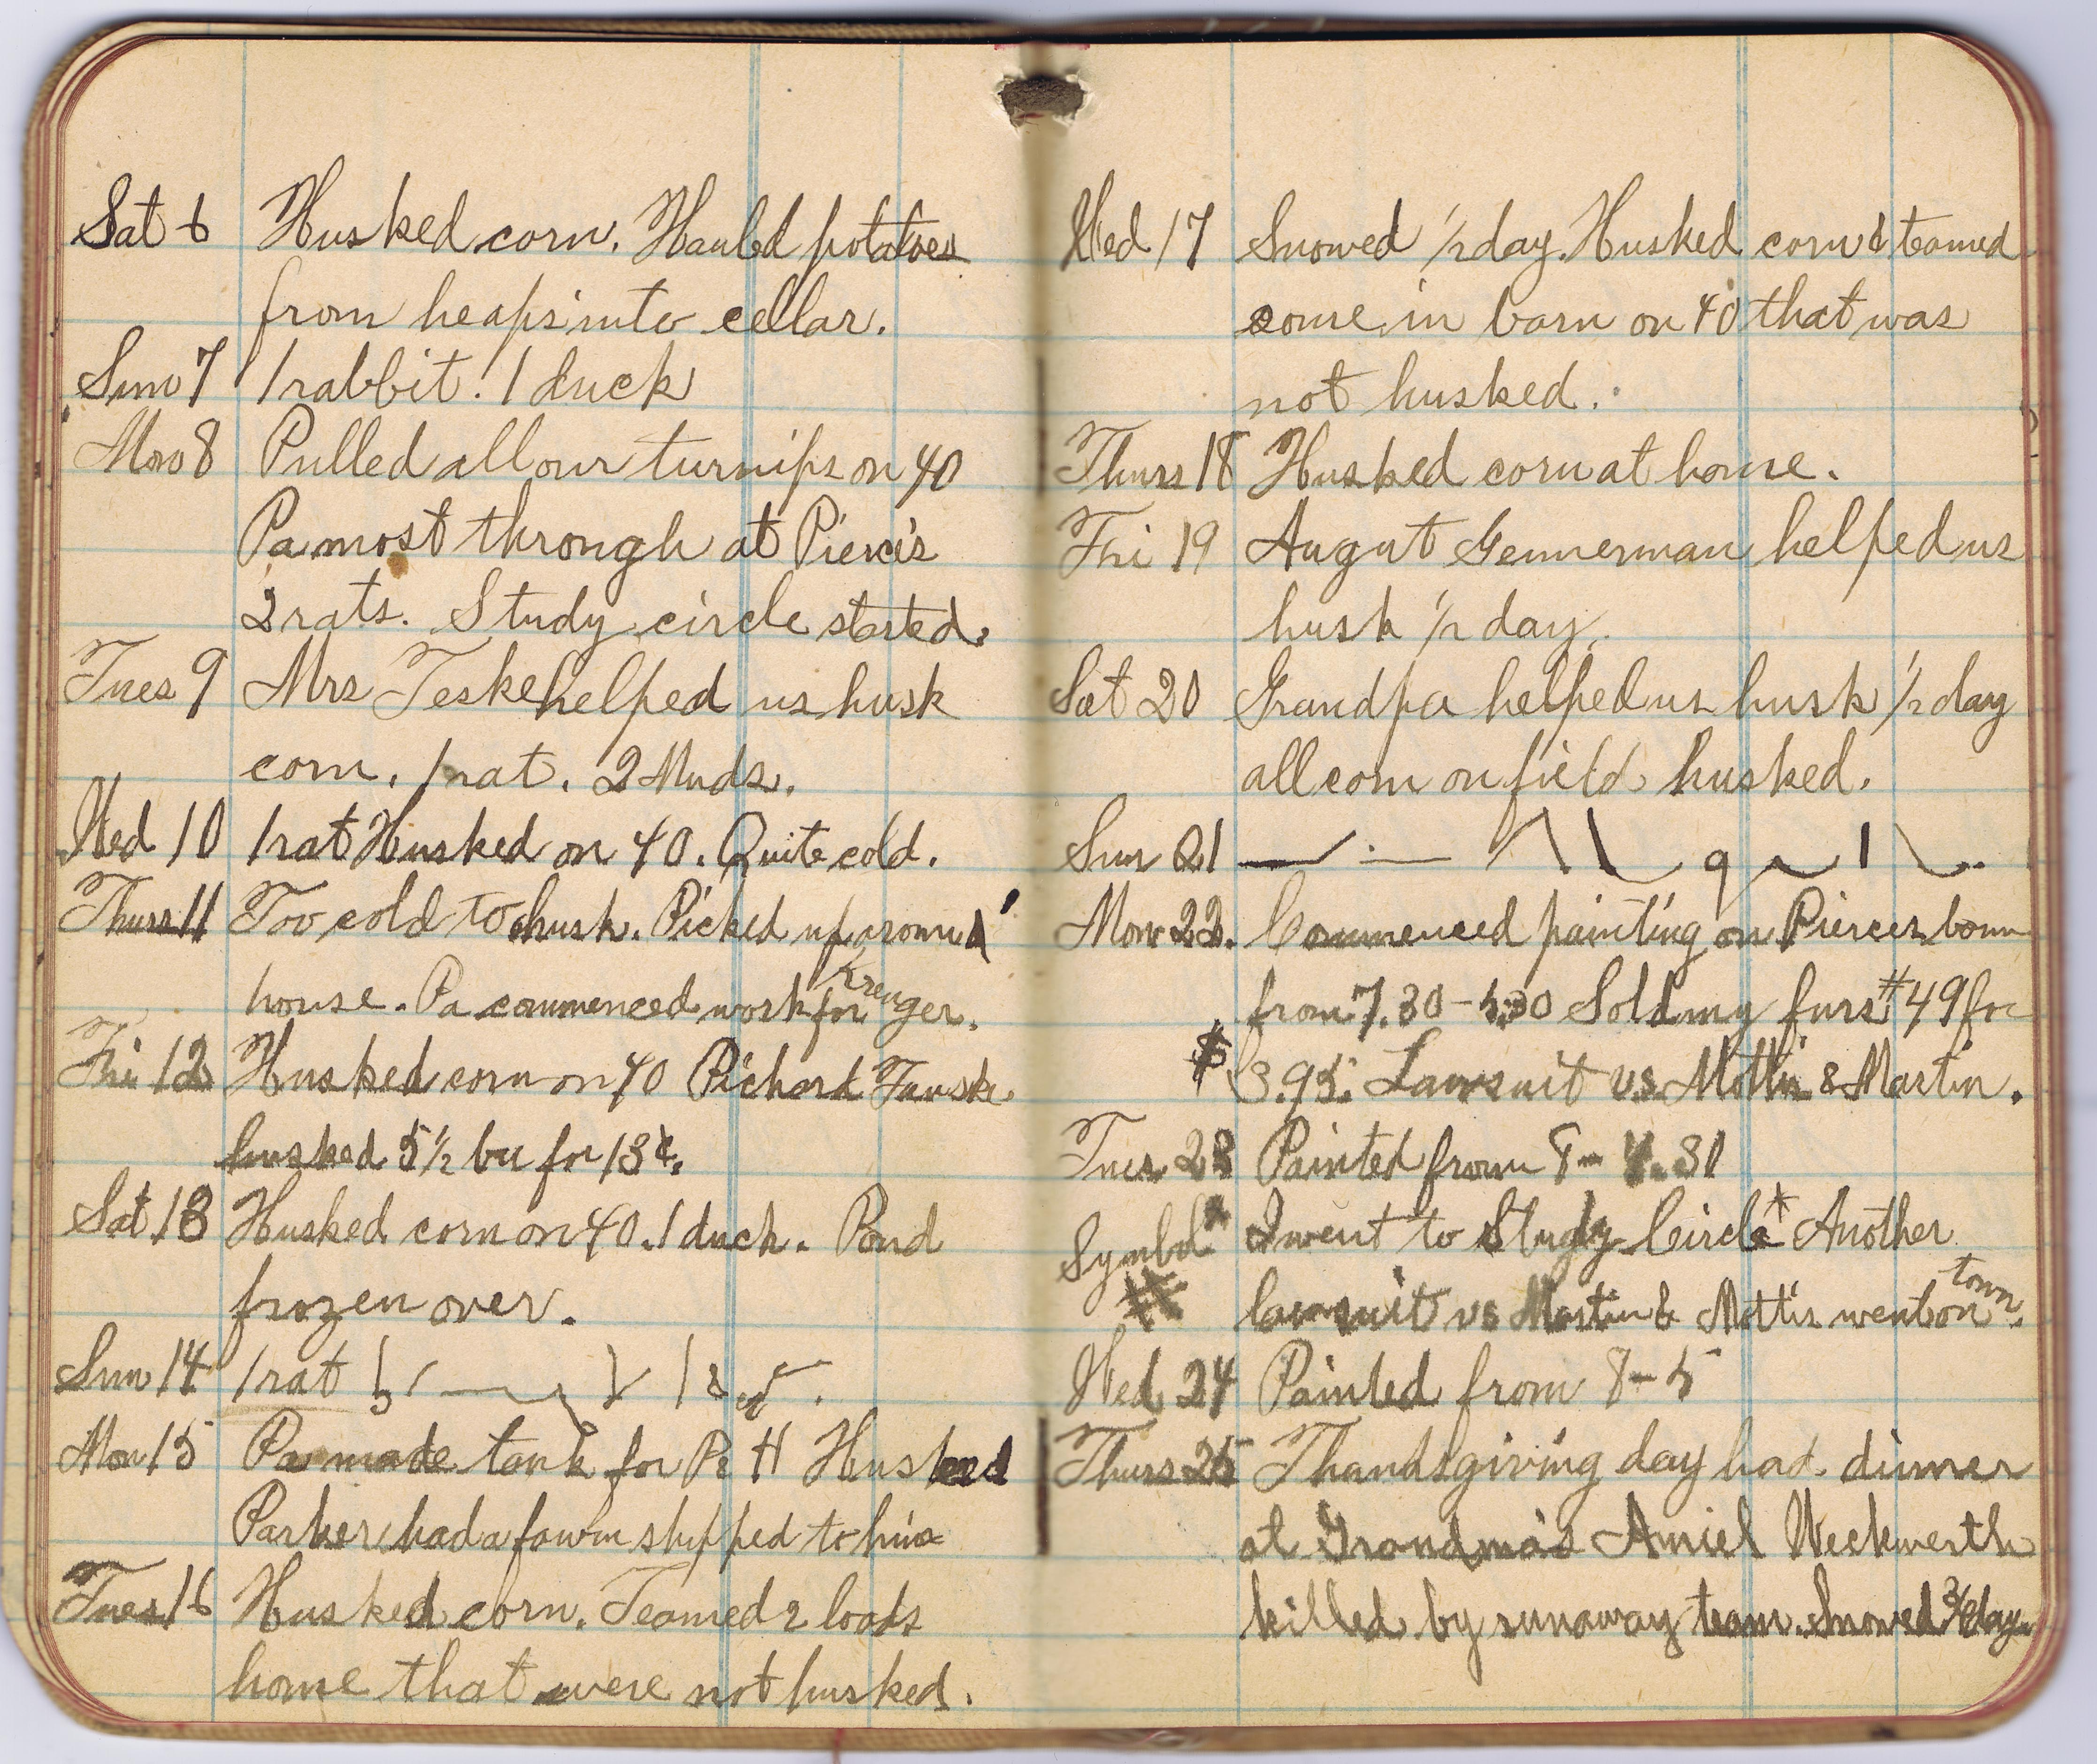 Sat 6 Husked corn. Hauled potatoes
from heaps into cellar.
Sun 7 1 rabbit. 1 duck
Mon 8 Pulled all our turnips on 40
Pa most through at Pierce's
2 rats. Study circle started.
Tues 9 Mrs Teske helped us husk
corn. 1 rat. 2 Muds.
Wed 10 1 rat Husked on 40. Quite cold.
Thurs 11 Too cold to husk. Picked up around
house. Pa commenced work for Kreuger.
Fri 12 Husked corn on 40 Richark Tanske
husked 5 1/2 bu for 13¢.
Sat 13 Husked corn on 40. 1 duck. Pond
frozen over.
Sun 14 1 rat
Mon 15 Pa made tank for P&H Husked
Parker had a fawn shipped to him
Tues 16 Husked corn. Teamed 2 loads
home that were not husked.
Wed 17 Snowed 1/2 day. Husked corn & teamed
some in barn on 40 that was
not husked.
Thurs 18 Husked corn at home.
Fri 19 August Gennerman helped us
husk 1/2 day.
Sat 20 Grandpa helped us husk 1/2 day
all corn on field husked.
Sun 21
Mon 22. Commenced painting on Pierces barn
from 7.30 - 5.30 Sold my furs #49 for
$3.95. Lawsuit vs. Mottis & Martin.
Tues 23 Painted from 8 - 4.31
Symbol * I went to Study Circle * Another
# lawsuit vs Martin & Mottis went on town.
Wed 24 Painted from 8 - 5
Thurs 25 Thandsgiving day had dinner
at Grandma's Amiel Weckwerth
killed by runaway team. Snowed 3/4 day.